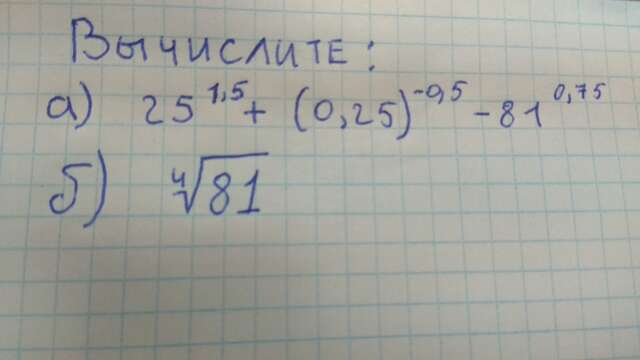 Вычислите:
а) 25^1,5 + (0,25)^-0,5 - 81^0,75
б) ∜81